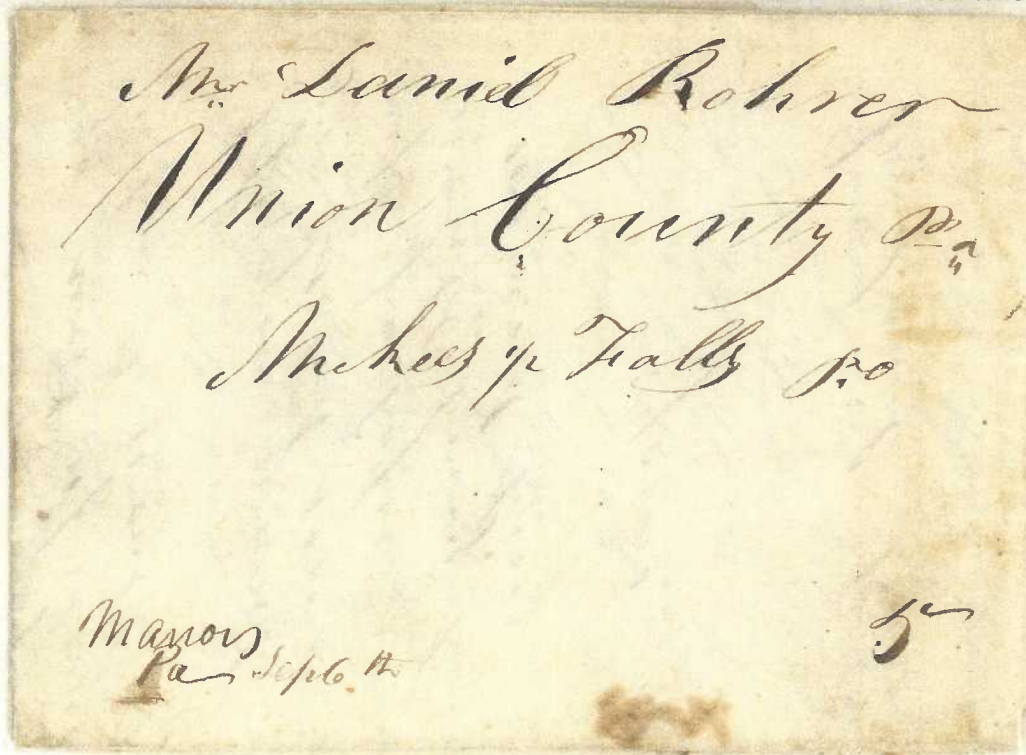 Mr Daniel Rohrer
Union County Pa
McKees ½ Falls P.O
Manor
Pa Sep 6th
5